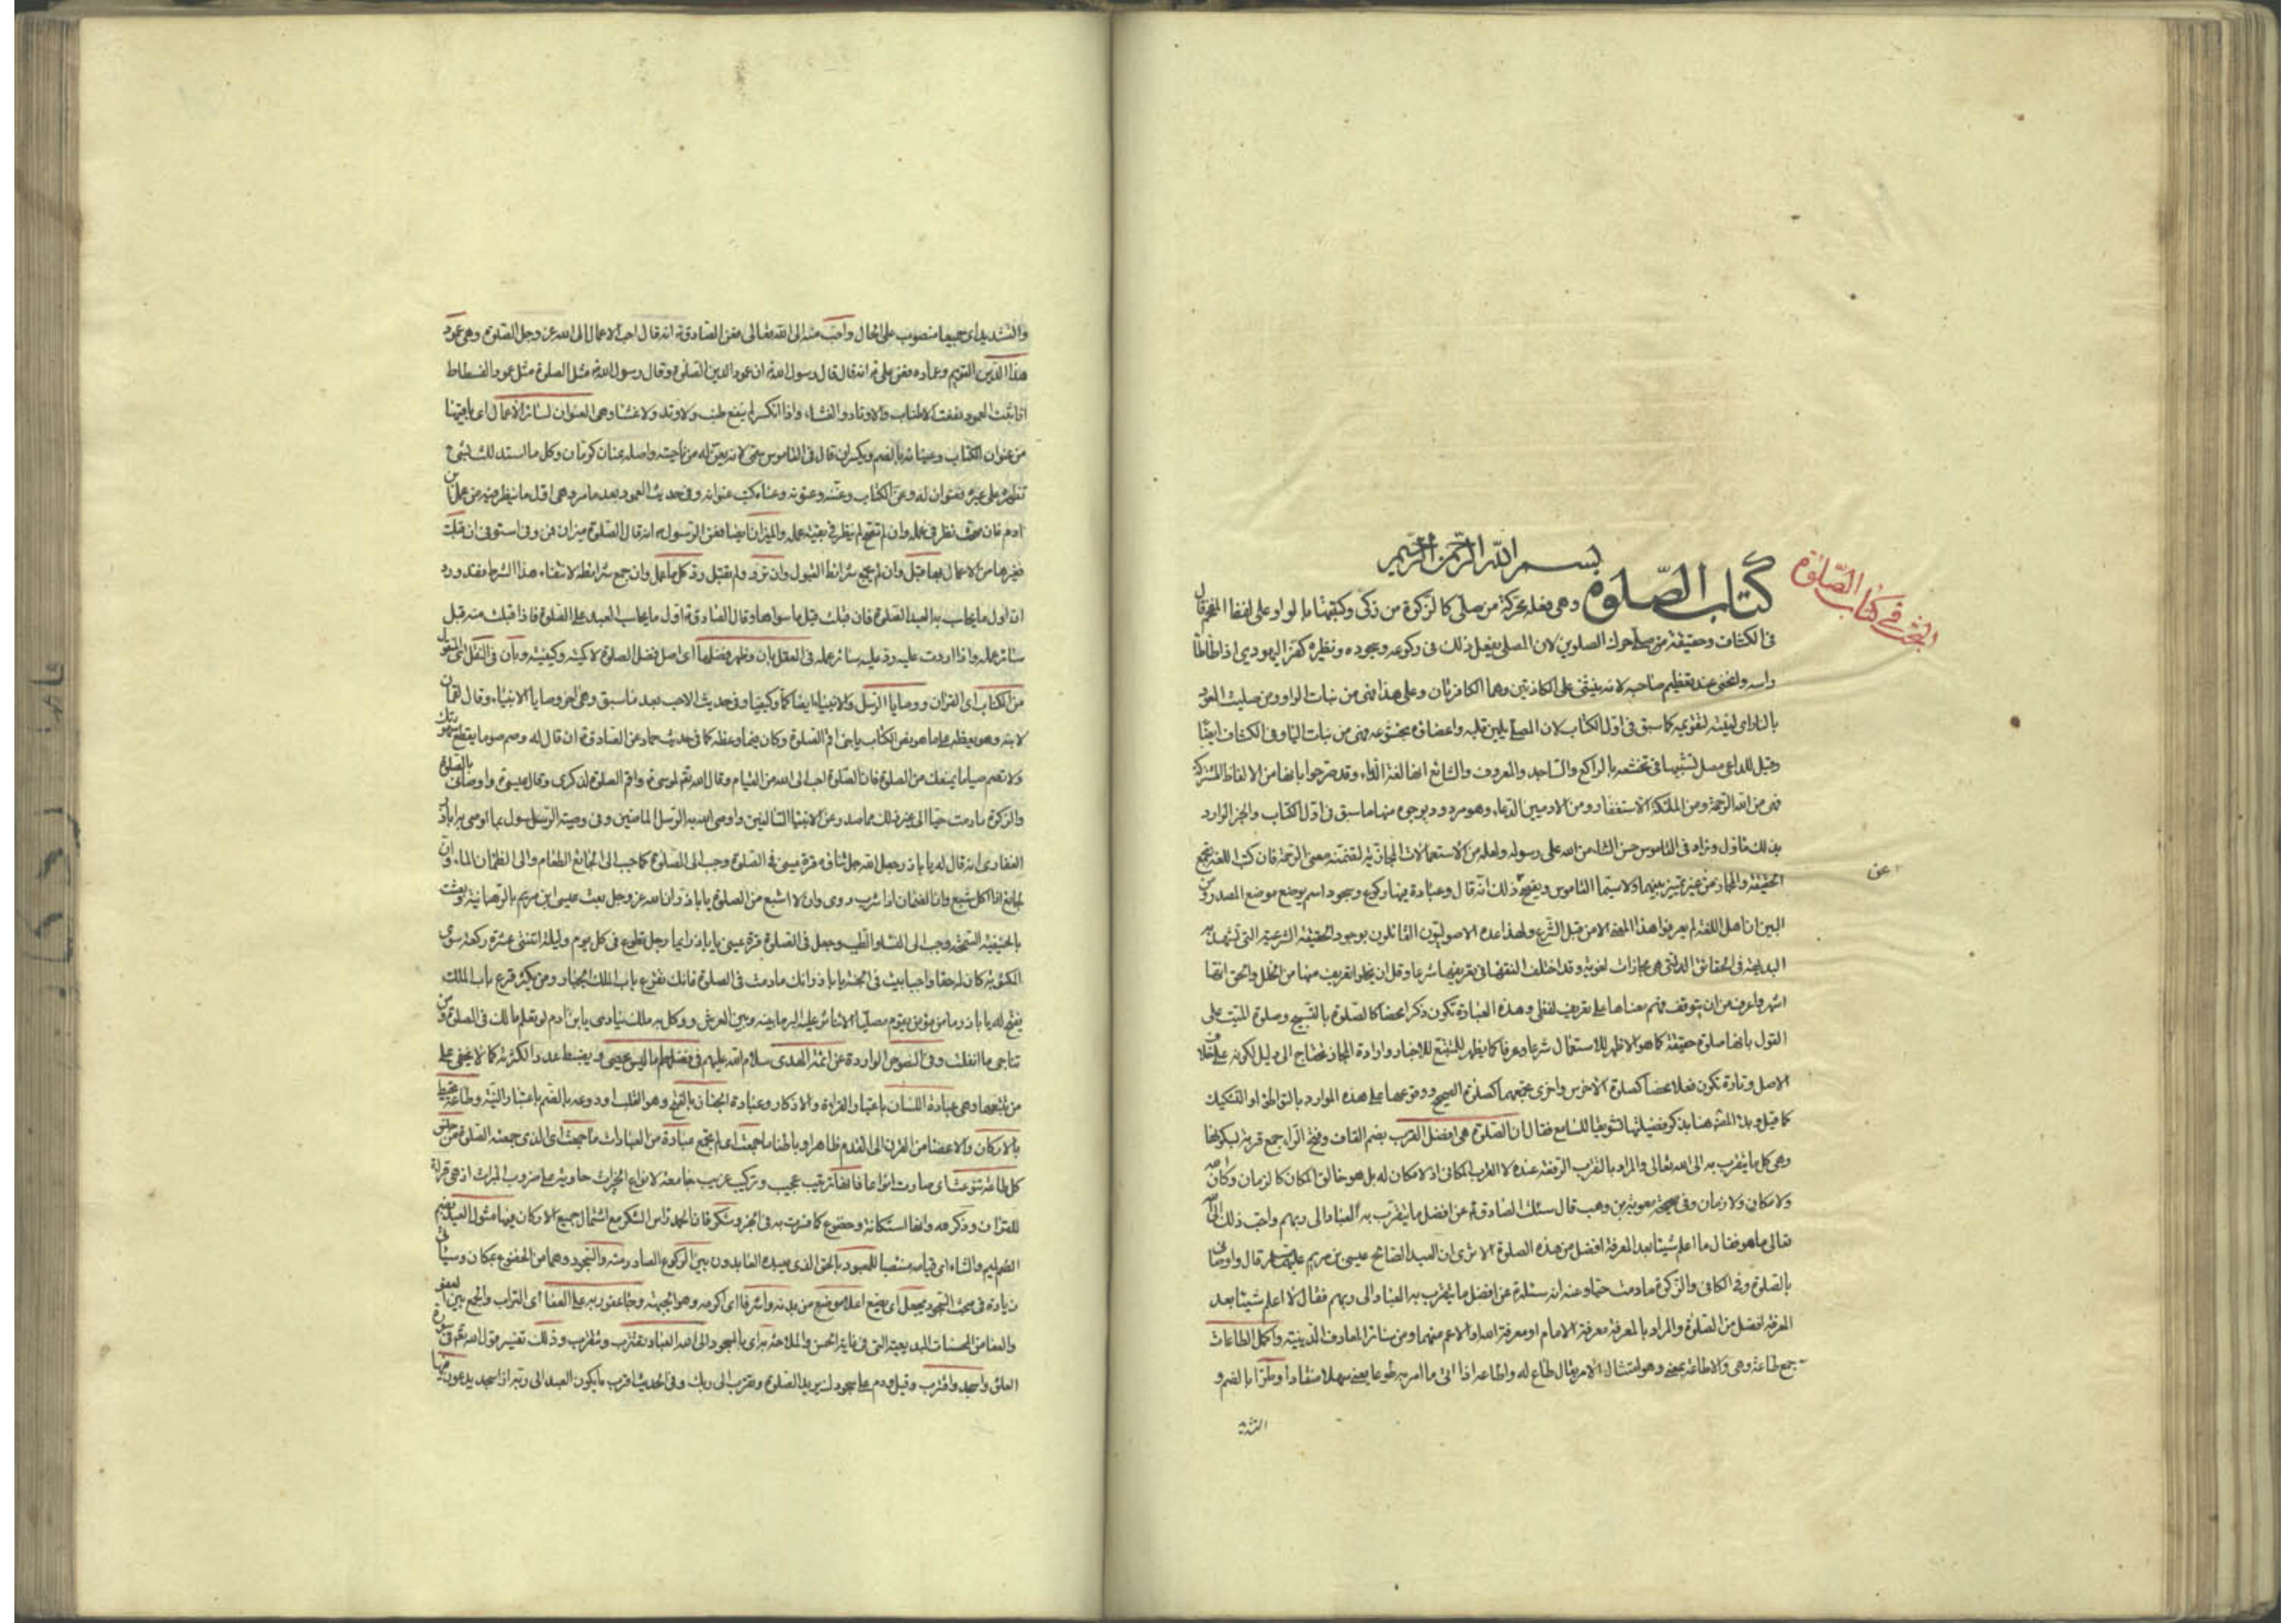 البحث في كتاب الصلوة
بسم الله الرحمن الرحيم
كتاب الصلوة وهى فعلة محركة من صلى كالزكوة من زكى وكتبتها بالواو على لفظ المفخم قال
فى الكشاف وحقيقة صلى حرك الصلوين لان المصلى يفعل ذلك فى ركوعه وسجوده ونظيره كفر اليهودى اذا طاطا
راسه وانحنى عند تعظيم صاحبه لانه ينثنى على الكاذتين وهما الكافرتان وعلى هذا فهى من بنات الواو ومن صليت العود
بالنار اى لينته لتقويمه كما سبق فى اول الكتاب لان المصلى يلين قلبه واعضاؤه بخشوعه فهى من بنات اليا وفى الكشاف ايضا
وقيل للداعى مصل تشبيها فى تخشعه بالراكع والساجد والمعروف والشائع انها لغة الدعاء وقد صرحوا بانها من الالفاظ المشتركة
فهى من الله الرحمة ومن الملئكة الاستغفار ومن الادميين الدعاء وهو مردود بوجوه منها ما سبق فى اول الكتاب والخبر الوارد
بذلك مأول وزاد فى القاموس حسن الثناء من الله على رسوله ولعله من الاستعمالات المجازية لتضمنه معنى الرحمة فان كتب اللغة تجمع
الحقيقة والمجاز من غير تمييز بينهما ولا سيما القاموس ذلك انه قال وعبادة فيها ركوع وسجود اسم يوضع موضع المصدر ومن
عن
البين ان اهل اللغة لم يعرفوا هذا المعنى الا من قبل الشرع ولهذا عده الاصوليون القائلون بوجود الحقيقة الشرعية التى تشهد به
البديهة فى الحقائق التى هى مجازات لغوية وقد اختلف الفقهاء فى تعريفها شرعا وقل ان يخلو تعريف منها من الخلل والحق انها
اشهر واعرف من ان يتوقف فهم معناها على تعريف لفظى وهذه العبادة تكون ذكرا محضا كالصلوة بالتسبيح وصلوة الميت على
القول بانها صلوة حقيقة كما هو الاظهر للاستعمال شرعا وعرفا كما يظهر للمتتبع للاخبار وارادة المجاز تحتاج الى دليل لكونه على خلاف
الاصل وتارة تكون فعلا محضا كصلوة الاخرس واخرى تجمعهما كصلوة الصحيح ووقوعها على هذه الموارد بالتواطؤ او التشكيك
كما قيل وبدا المص هنا بذكر فضيلتها تشويقا للسامع فقال ان الصلوة هى افضل القرب بضم القاف وفتح الراء جمع قربة بسكونها
وهى كل ما يتقرب به الى الله تعالى والمراد بالقرب الرفعة عنده لا القرب المكانى اذ لا مكان له بل هو خالق المكان كالزمان وكان الله
ولا مكان ولا زمان وفى صحيحة معوية بن وهب قال سئلت الصادق ع عن افضل ما يتقرب به العباد الى ربهم واحب ذلك الى الله
تعالى ما هو فقال ما اعلم شيئا بعد المعرفة افضل من هذه الصلوة الا ترى ان العبد الصالح عيسى بن مريم عليهما السلام قال واوصانى
بالصلوة وفى الكافى والزكوة ما دمت حيا وعنه انه سئله عن افضل ما يتقرب به العباد الى ربهم فقال لا اعلم شيئا بعد
المعرفة افضل من الصلوة والمراد بالمعرفة معرفة الامام او معرفة الله او الاعم منهما ومن سائر المعارف الدينية واكمل الطاعات
جمع طاعة وهى والاطاعة بمعنى وهو امتثال الامر يقال طاع له واطاعه اذا اتى ما امر به طوعا يعنى سهلا منقادا وطرا بالضم و
التشد
والتشديد اى جميعا منصوب على الحال واحب منه الى الله تعالى فعن الصادق ع انه قال احب الاعمال الى الله عز وجل الصلوة وهى عمود
هذا الدين القويم وعماده فعن على ع انه قال قال رسول الله ص ان عمود الدين الصلوة وقال رسول الله ص مثل الصلوة مثل عمود الفسطاط
اذا ثبت العمود نفعت الاطناب والاوتاد والغشاء واذا انكسر لم ينفع طنب ولا وتد ولا غشاء وهى العنوان لسائر الاعمال اى باقيتها
من عنوان الكتاب وعينانه بالضم ويكسران قال فى القاموس سمى لانه يعن له من ناحيته واصله عنان كرمان وكل ما استدللت بشئ
تظهره على غيره فعنوان له وعن الكتاب وعننه وعنونه وعناه كتب عنوانه وفى حديث العمود بعد ما مر وهى اول ما ينظر فيه من عمل ابن
ادم فان صحت نظر فى عمله وان لم تصح لم ينظر فى بقية عمله والميزان ايضا فعن الرسول ص انه قال الصلوة ميزان فمن وفى استوفى ان قبلت
فغيرها من الاعمال بها قبل وان لم يجمع شرائط القبول وان ترد ولم يقبل رد كل ما عمل وان جمع شرائطه لانتفاء هذا الشرط فقد ورد
ان اول ما يحاسب به العبد الصلوة فان قبلت قبل ما سواها وقال الصادق ع اول ما يحاسب العبد على الصلوة فاذا قبلت منه قبل
سائر عمله واذا ردت عليه رد عليه سائر عمله فى العقل بان وظهر فضلها اى اصل فضل الصلوة لا كميته وكيفيته وبان فى النقل اى المنقول
من الكتاب اى القران ووصايا الرسل والانبياء ايضا كما وكيفا وفى حديث الاحب بعد ما سبق وهى اخر وصايا الانبياء وقال لقمان
لابنه وهو يعظه على ما هو بنص الكتاب يا بنى اقم الصلوة وكان فيما وعظه كما فى حديث حماد عن الصادق ع ان قال له وصم صوما يقطع شهوتك
ولا تصم صياما يمنعك من الصلوة فان الصلوة احب الى الله من الصيام وقال الله تعالى لموسى ع واقم الصلوة لذكرى وقال عيسى ع واوصانى بالصلوة
والزكوة ما دمت حيا الى غير ذلك مما صدر عن الانبياء السالفين واوصى الله به الرسل الماضين وفى وصية الرسول بما اوصى به ابا ذر
الغفارى انه قال له يا باذر جعل الله جل ثناؤه قرة عينى فى الصلوة وحبب الى الصلوة كما حبب الى الجائع الطعام والى الظمان الماء وان
الجائع اذا اكل شبع وان الظمان اذا شرب روى وانا لا اشبع من الصلوة يا باذر ان الله عز وجل بعث عيسى ابن مريم بالرهبانية وبعثت
بالحنيفية السمحة وحبب الى النساء والطيب وجعل فى الصلوة قرة عينى يا باذر ايما رجل تطوع فى كل يوم وليلة اثنتى عشرة ركعة سوى
المكتوبة كان له حقا واجبا بيت فى الجنة يا باذر انك ما دمت فى الصلوة فانك تقرع باب الملك الجبار ومن يكثر قرع باب الملك
يفتح له يا باذر ما من مؤمن يقوم مصليا الا تناثر عليه البر ما بينه وبين العرش ووكل به ملك ينادى يا بن ادم لو تعلم ما لك فى الصلوة ومن
تناجى ما انفتلت وفى النصوص الواردة عن ائمة الهدى سلام الله عليهم فى فضلها ما ليس يحصى ويضبط عدد الكثرته كما لا يخفى على
من تتبعها وهى عبادة اللسان باعتبار القراءة والاذكار وعبادة الجنان بالفتح وهو القلب او روعه بالضم باعتبار النية وطاعة تحيط
بالاركان والاعضا من القرن الى القدم ظاهرا وباطنا ما جمعت اى لم يجمع عبادة من العبادات ما جمعت اى الذى جمعته الصلوة من
كل طاعة تنوعت اى صارت انواعا فانها ترتيب عجيب وتركيب غريب جامعة لانواع الخيرات حاوية على ضروب المبرات اذ هى قراءة
للقران وذكر فيها استكانة وخضوع كما فسرت به فى الخبر وشكر فان الحمد راس الشكر مع اشتمال جميع الاركان فيها مثول العبد بضم
الميم والثاء اى قيامه منتصبا للمعبود بالحق الذى يعبده العابدون بين الركوع الصادر منه والسجود وهما من الخضوع بمكان وسياتى
زيادة فى بحث السجود يجعل اى يضع اعلا موضع من بدنه واشرفا اى اكرمه وهو الجبهة على العفا اى التراب والجمع بين
والعفا من المحسنات البديعية التى فى غاية الحسن والملاحة به اى بالسجود الى الله العباد تقترب وتقرب وذلك تفسير قول الله تعالى فى سورة
العلق واسجد واقترب وقيل ودم على سجودك يريد الصلوة وتقرب الى ربك وفى الحديث اقرب ما يكون العبد الى ربه اذا سجد يدعون